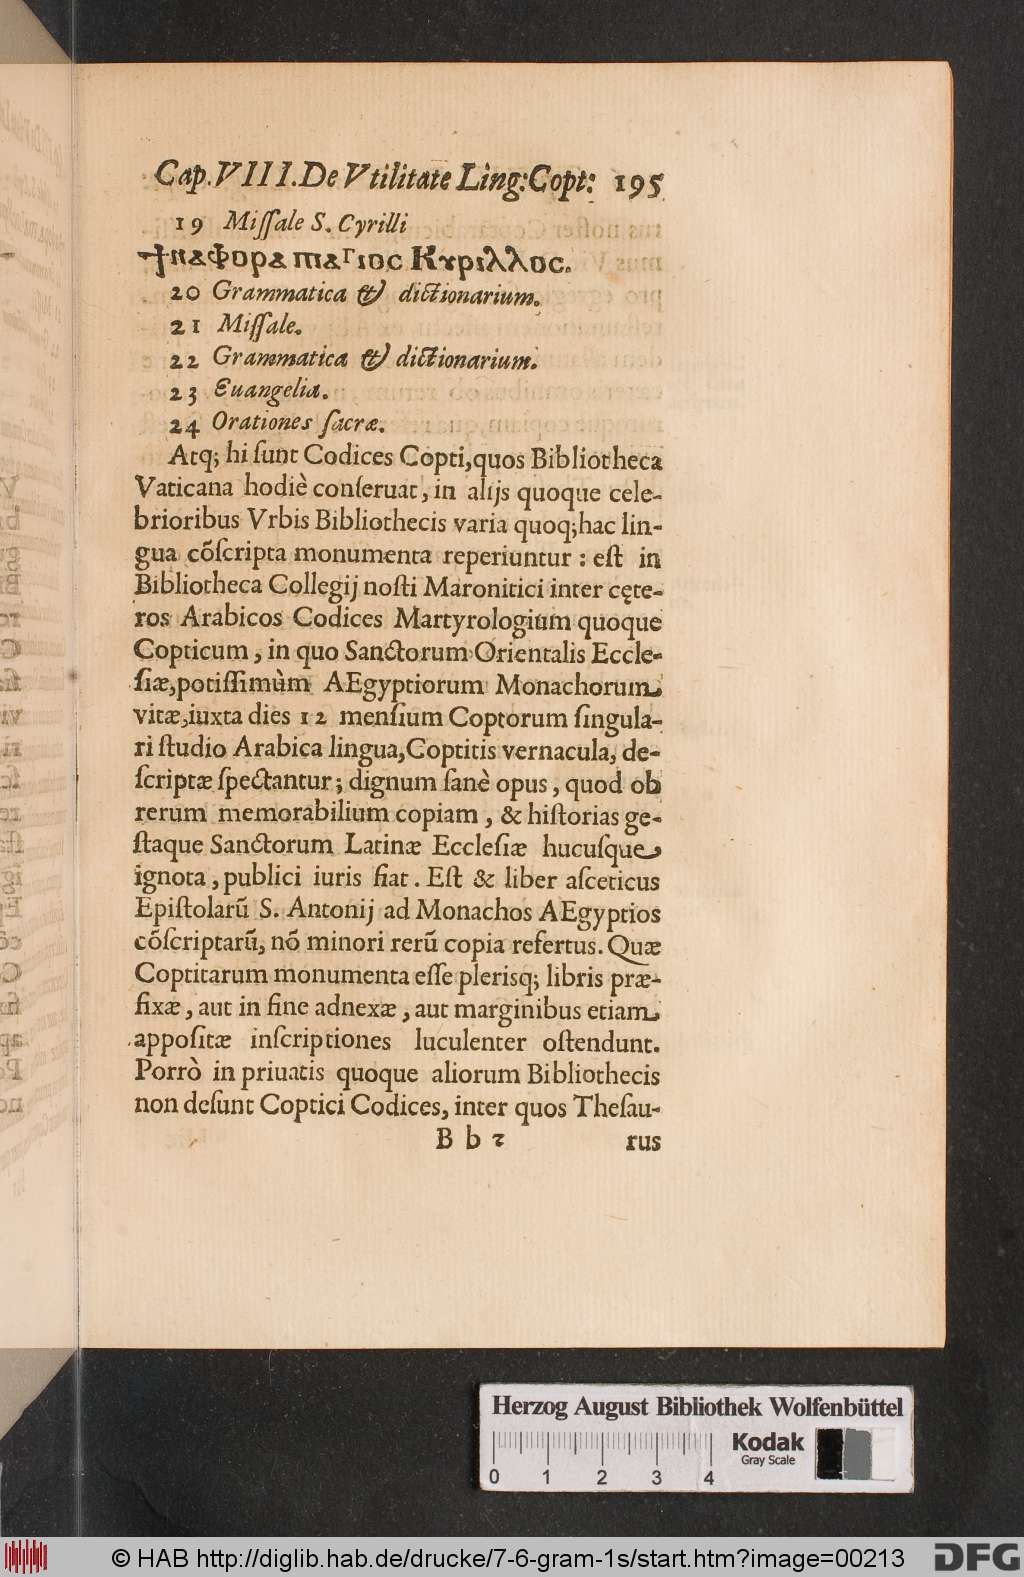 Cap. VIII. De Vtilitate Ling: Copt: 195
19 Miſſale S. Cyrilli
ϯⲛⲁⲫⲟⲣⲁ ⲡⲓⲁⲅⲓⲟⲥ Ⲕⲩⲣⲓⲗⲗⲟⲥ.
20 Grammatica & dictionarium.
21 Miſſale.
22 Grammatica & dictionarium.
23 Euangelia.
24 Orationes ſacræ.
Atq; hi ſunt Codices Copti, quos Bibliotheca
Vaticana hodiè conſeruat, in alijs quoque cele-
brioribus Vrbis Bibliothecis varia quoq; hac lin-
gua cōſcripta monumenta reperiuntur : eſt in
Bibliotheca Collegij noſti Maronitici inter cęte-
ros Arabicos Codices Martyrologium quoque
Copticum, in quo Sanctorum Orientalis Eccle-
ſiæ, potiſſimùm AEgyptiorum Monachorum
vitæ, iuxta dies 12 menſium Coptorum ſingula-
ri ſtudio Arabica lingua, Coptitis vernacula, de-
ſcriptæ ſpectantur; dignum ſanè opus, quod ob
rerum memorabilium copiam, & hiſtorias ge-
ſtaque Sanctorum Latinæ Eccleſiæ hucuſque
ignota, publici iuris fiat. Eſt & liber aſceticus
Epiſtolarū S. Antonij ad Monachos AEgyptios
cōſcriptarū, nō minori rerū copia refertus. Quæ
Coptitarum monumenta eſſe plerisq; libris præ-
fixæ, aut in fine adnexæ, aut marginibus etiam
appoſitæ inſcriptiones luculenter oſtendunt.
Porrò in priuatis quoque aliorum Bibliothecis
non deſunt Coptici Codices, inter quos Theſau-
B b 2 rus
Herzog August Bibliothek Wolfenbüttel
Kodak
Gray Scale
0 1 2 3 4
© HAB http://diglib.hab.de/drucke/7-6-gram-1s/start.htm?image=00213
DFG